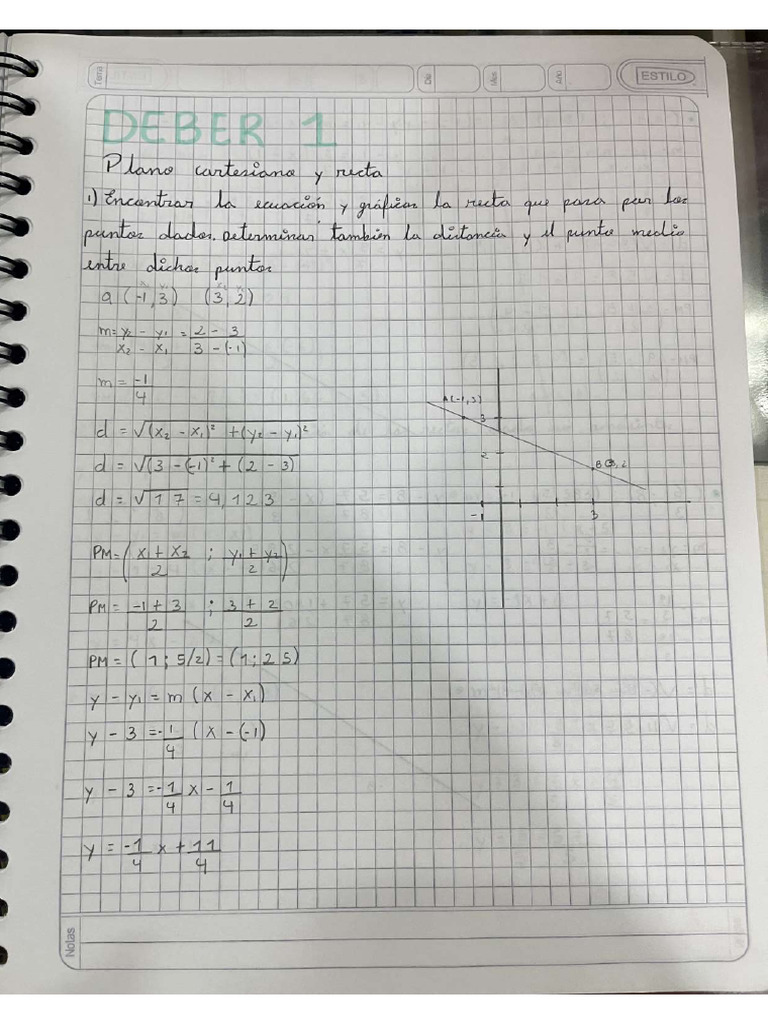 Tema
Día
Mes
Año
ESTILO
DEBER 1
Plano cartesiano y recta
1) Encontrar la ecuación y gráficar la recta que pasa por los
puntos dados. Determinar también la distancia y el punto medio
entre dichos puntos
x₁ y₁ x₂ y₂
a (-1,3) (3,2)
m = y₂ - y₁ / x₂ - x₁ = 2 - 3 / 3 - (-1)
m = -1/4
d = √(x₂ - x₁)² + (y₂ - y₁)²
d = √(3 - (-1)² + (2 - 3)
d = √17 = 4,123
PM = (x₁ + x₂ / 2 ; y₁ + y₂ / 2)
PM = -1 + 3 / 2 ; 3 + 2 / 2
PM = (1 ; 5/2) = (1 ; 2 5)
y - y₁ = m (x - x₁)
y - 3 = -1/4 (x - (-1)
y - 3 = -1/4 x - 1/4
y = -1/4 x + 11/4
A(-1,3)
3
2
B(3,2
-1
3
Notas